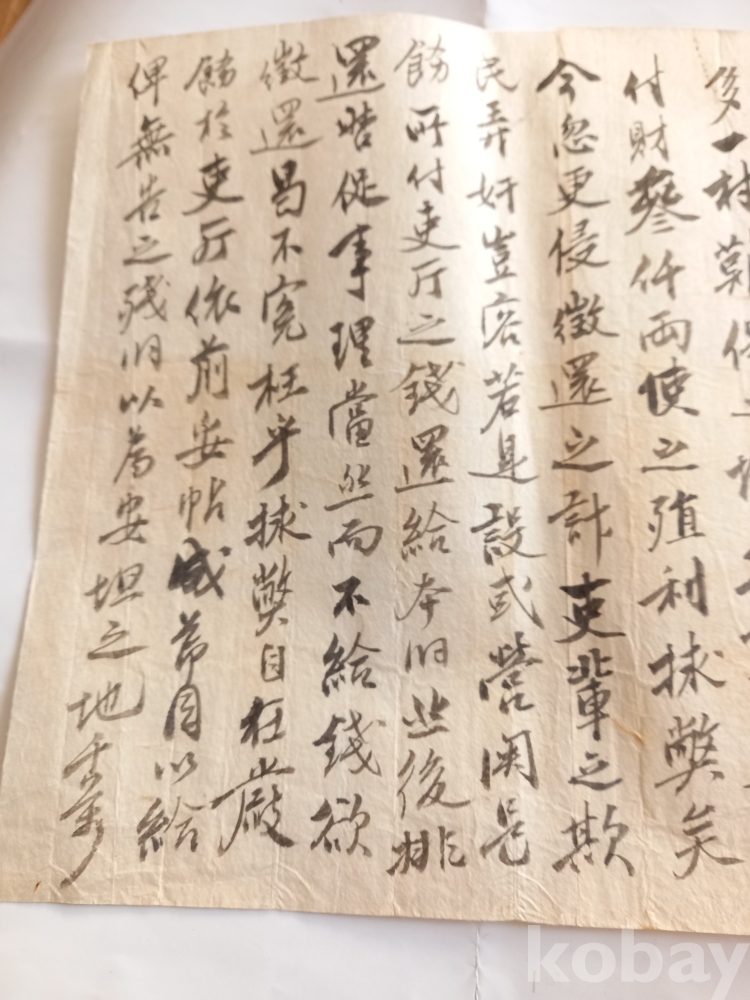 後一村難保之
付財參仟兩使之殖利捄弊矣
今忽更侵徵還之計吏輩之欺
民弄奸豈容若是設或營関是
飭所付吏廳之錢還給本洞然後排
還皆從事理當然而不給錢欲
徵還曷不寃枉乎捄弊自在嚴
飭於吏廳依前安帖成節目以給
俾無告之殘洞以爲安坦之地千萬
kobay